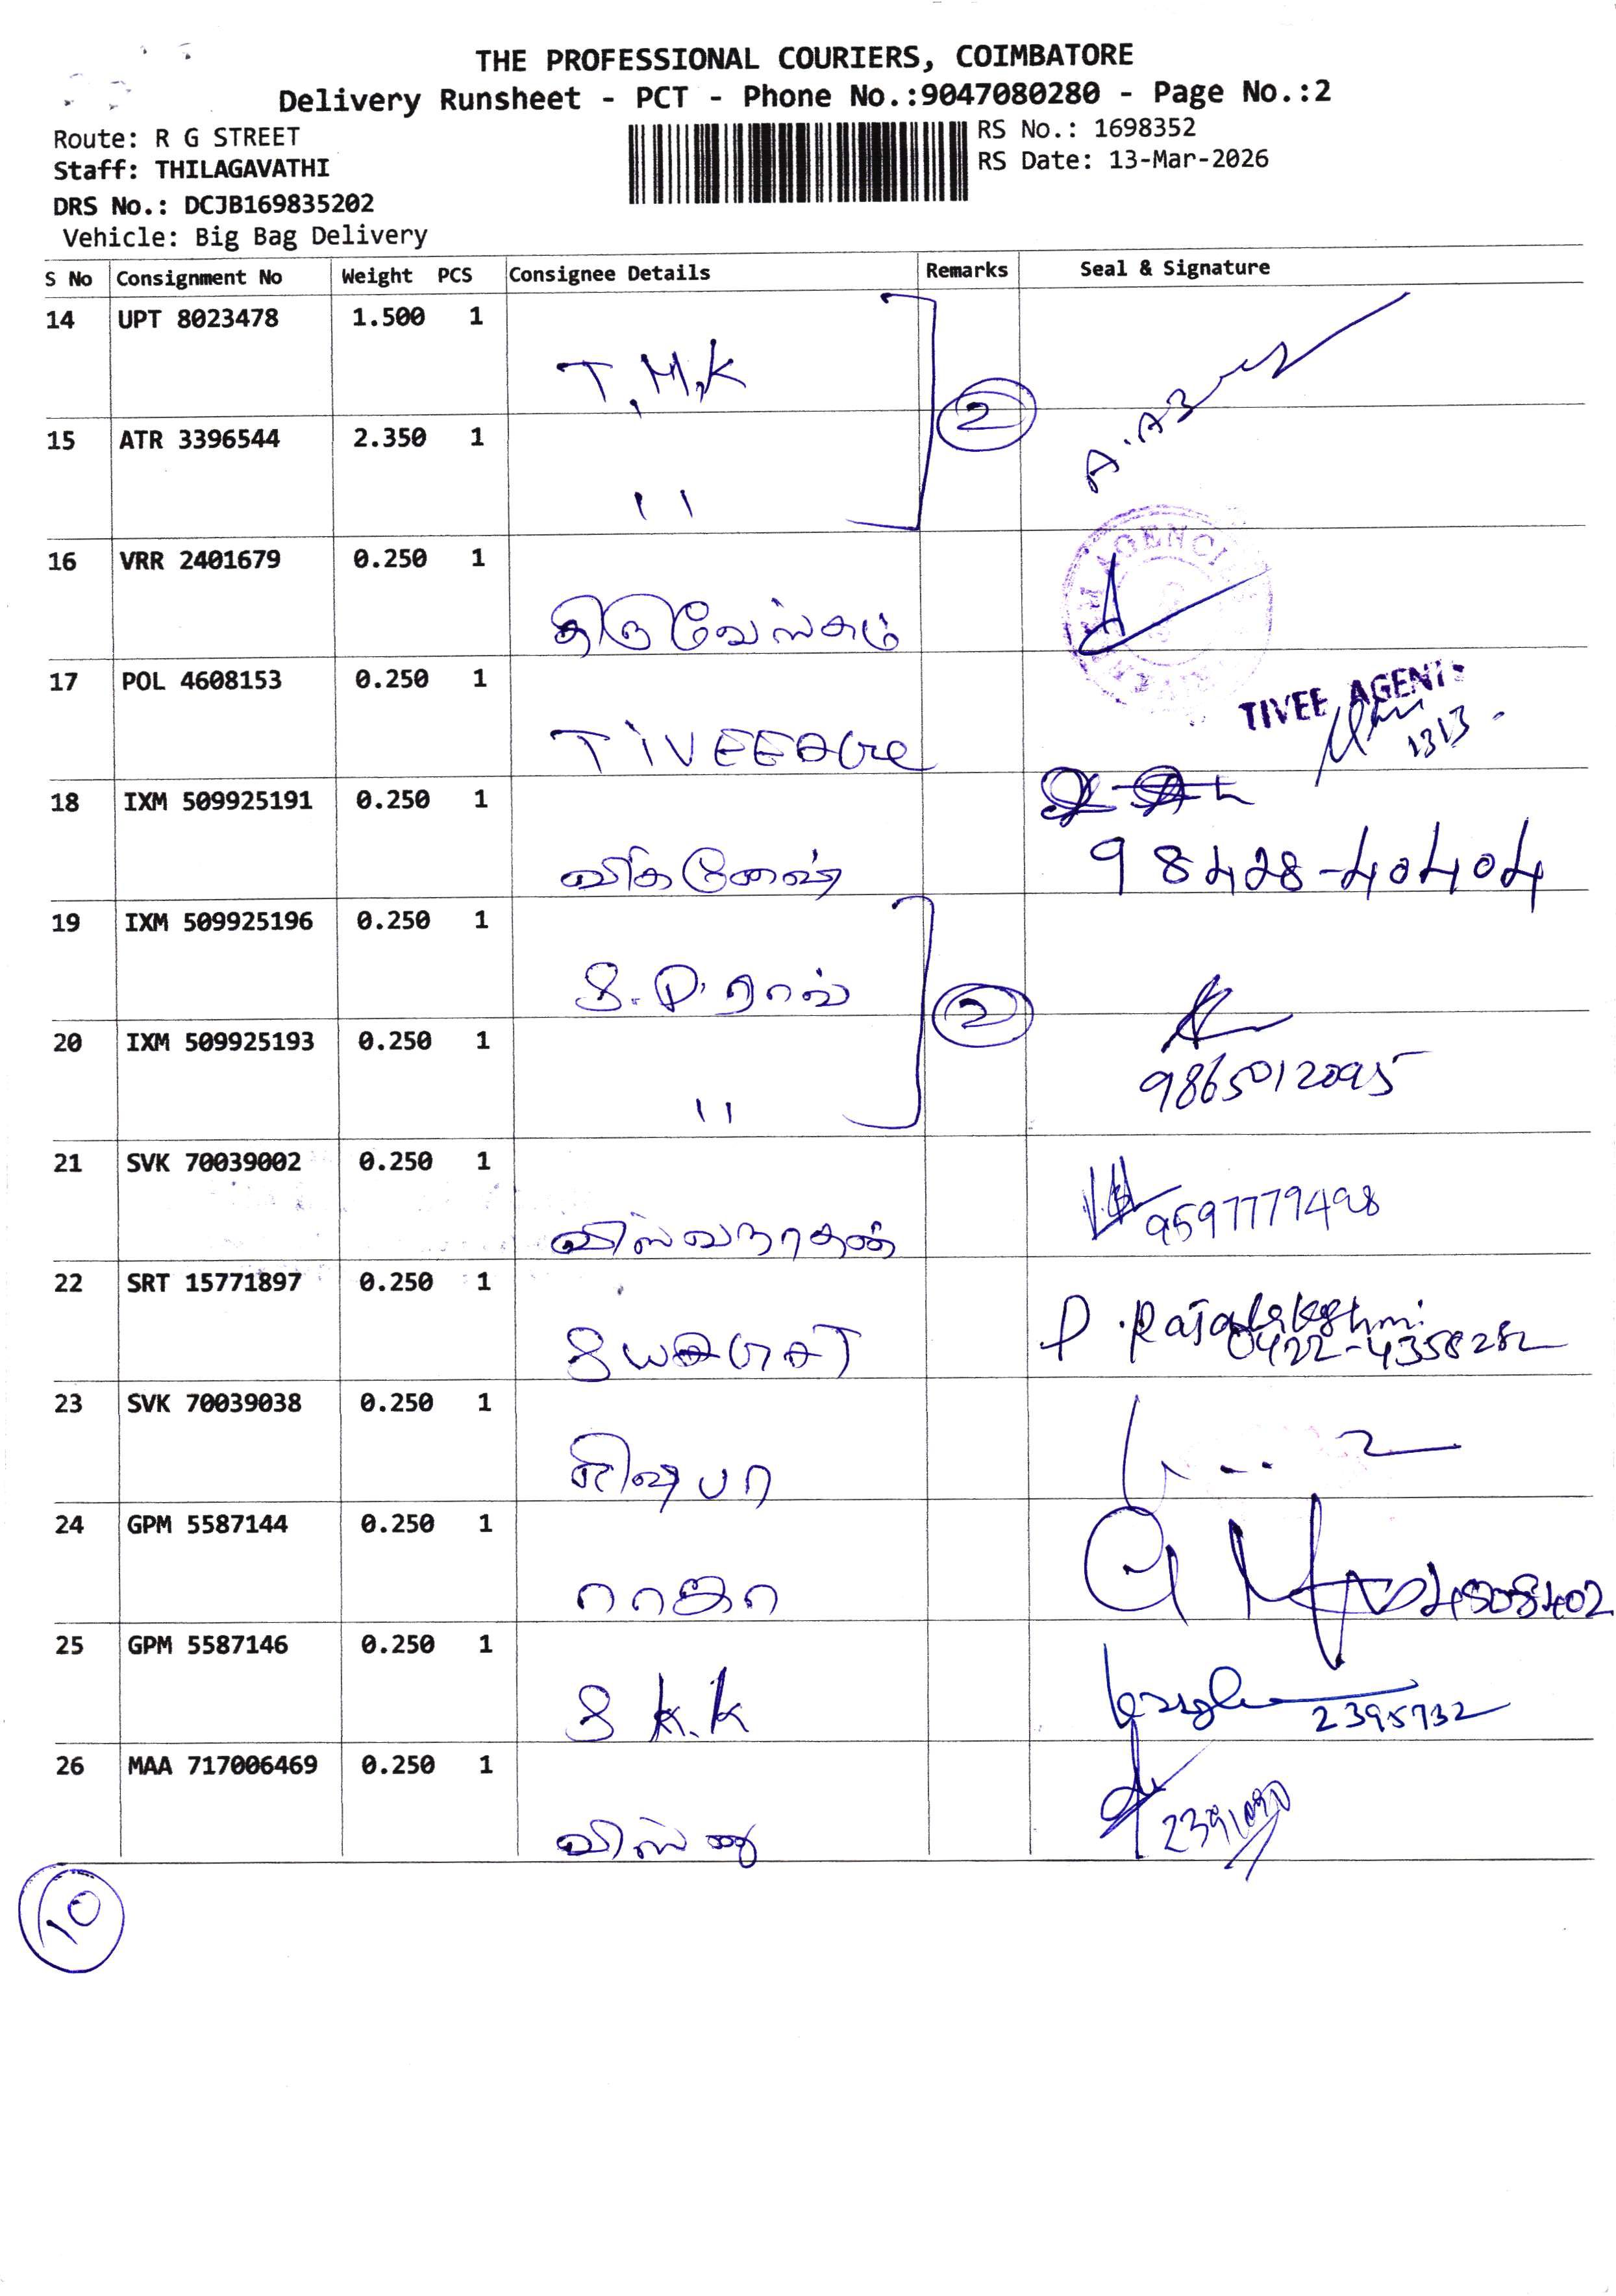 THE PROFESSIONAL COURIERS, COIMBATORE
Delivery Runsheet - PCT - Phone No.:9047080280 - Page No.:2
Route: R G STREET
RS No.: 1698352
Staff: THILAGAVATHI
RS Date: 13-Mar-2026
DRS No.: DCJB169835202
Vehicle: Big Bag Delivery
S No Consignment No Weight PCS Consignee Details Remarks Seal & Signature
14 UPT 8023478 1.500 1
T.M.K
2
15 ATR 3396544 2.350 1
"
16 VRR 2401679 0.250 1
AGENCI
17 POL 4608153 0.250 1
TIVEE AGENT
TIVEE
18 IXM 509925191 0.250 1
98428-40404
19 IXM 509925196 0.250 1
2
20 IXM 509925193 0.250 1
9865012095
"
21 SVK 70039002 0.250 1
9597779498
விஸ்வநாதன்
22 SRT 15771897 0.250 1
P. Rajalakshmi
0422-4358282
23 SVK 70039038 0.250 1
ஷில்பா
24 GPM 5587144 0.250 1
ராஜா
25 GPM 5587146 0.250 1
S K.K
2395732
26 MAA 717006469 0.250 1
விஸ்ணு
10